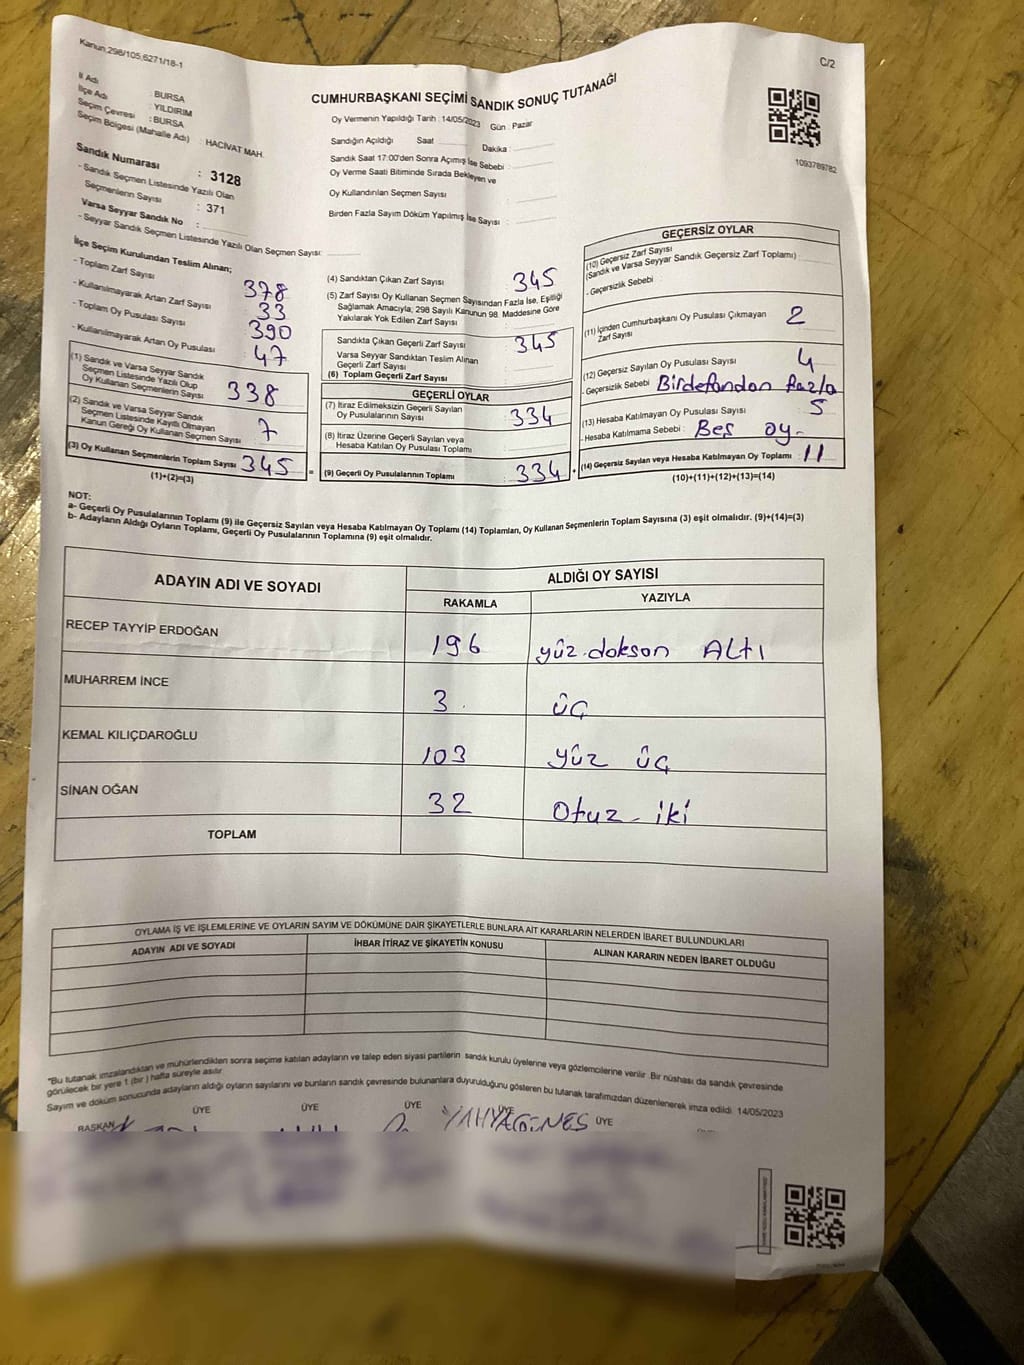 Kanun:298/105,6271/18-1
C/2
İl Adı : BURSA
İlçe Adı : YILDIRIM
Seçim Çevresi : BURSA
Seçim Bölgesi (Mahalle Adı) : HACİVAT MAH.
Sandık Numarası : 3128
- Sandık Seçmen Listesinde Yazılı Olan
Seçmenlerin Sayısı : 371
Varsa Seyyar Sandık No :
- Seyyar Sandık Seçmen Listesinde Yazılı Olan Seçmen Sayısı:
CUMHURBAŞKANI SEÇİMİ SANDIK SONUÇ TUTANAĞI
Oy Vermenin Yapıldığı Tarih : 14/05/2023 Gün : Pazar
Sandığın Açıldığı Saat Dakika :
Sandık Saat 17:00'den Sonra Açımış İse Sebebi :
Oy Verme Saati Bitiminde Sırada Bekleyen ve
Oy Kullandırılan Seçmen Sayısı
Birden Fazla Sayım Döküm Yapılmış İse Sayısı :
1093789782
İlçe Seçim Kurulundan Teslim Alınan;
- Toplam Zarf Sayısı 378
- Kullanılmayarak Artan Zarf Sayısı 33
- Toplam Oy Pusulası Sayısı 390
- Kullanılmayarak Artan Oy Pusulası 47
(1) Sandık ve Varsa Seyyar Sandık
Seçmen Listesinde Yazılı Olup
Oy Kullanan Seçmenlerin Sayısı 338
(2) Sandık ve Varsa Seyyar Sandık
Seçmen Listesinde Kayıtlı Olmayan
Kanun Gereği Oy Kullanan Seçmen Sayısı 7
(3) Oy Kullanan Seçmenlerin Toplam Sayısı 345
(1)+(2)=(3)
(4) Sandıktan Çıkan Zarf Sayısı 345
(5) Zarf Sayısı Oy Kullanan Seçmen Sayısından Fazla İse, Eşitliği
Sağlamak Amacıyla, 298 Sayılı Kanunun 98. Maddesine Göre
Yakılarak Yok Edilen Zarf Sayısı :
Sandıkta Çıkan Geçerli Zarf Sayısı : 345
Varsa Seyyar Sandıktan Teslim Alınan
Geçerli Zarf Sayısı
(6) Toplam Geçerli Zarf Sayısı :
GEÇERLİ OYLAR
(7) İtiraz Edilmeksizin Geçerli Sayılan
Oy Pusulalarının Sayısı : 334
(8) İtiraz Üzerine Geçerli Sayılan veya
Hesaba Katılan Oy Pusulası Toplamı :
= (9) Geçerli Oy Pusulalarının Toplamı : 334 +
GEÇERSİZ OYLAR
(10) Geçersiz Zarf Sayısı
(Sandık ve Varsa Seyyar Sandık Geçersiz Zarf Toplamı) :
- Geçersizlik Sebebi :
(11) İçinden Cumhurbaşkanı Oy Pusulası Çıkmayan
Zarf Sayısı 2
(12) Geçersiz Sayılan Oy Pusulası Sayısı 4
- Geçersizlik Sebebi Birdefandan fazla
(13) Hesaba Katılmayan Oy Pusulası Sayısı 5
- Hesaba Katılmama Sebebi : Beş oy-
(14) Geçersiz Sayılan veya Hesaba Katılmayan Oy Toplamı : 11
(10)+(11)+(12)+(13)=(14)
NOT:
a- Geçerli Oy Pusulalarının Toplamı (9) ile Geçersiz Sayılan veya Hesaba Katılmayan Oy Toplamı (14) Toplamları, Oy Kullanan Seçmenlerin Toplam Sayısına (3) eşit olmalıdır. (9)+(14)=(3)
b- Adayların Aldığı Oyların Toplamı, Geçerli Oy Pusulalarının Toplamına (9) eşit olmalıdır.
ADAYIN ADI VE SOYADI
ALDIĞI OY SAYISI
RAKAMLA YAZIYLA
RECEP TAYYİP ERDOĞAN 196 yüz-dokson ALTı
MUHARREM İNCE 3 üç
KEMAL KILIÇDAROĞLU 103 yüz üç
SİNAN OĞAN 32 Otuz-iki
TOPLAM
OYLAMA İŞ VE İŞLEMLERİNE VE OYLARIN SAYIM VE DÖKÜMÜNE DAİR ŞİKAYETLERLE BUNLARA AİT KARARLARIN NELERDEN İBARET BULUNDUKLARI
ADAYIN ADI VE SOYADI İHBAR İTİRAZ VE ŞİKAYETİN KONUSU ALINAN KARARIN NEDEN İBARET OLDUĞU
"Bu tutanak imzalandıktan ve mühürlendikten sonra seçime katılan adayların ve talep eden siyasi partilerin sandık kurulu üyelerine veya gözlemcilerine verilir. Bir nüshası da sandık çevresinde
görülecek bir yere 1 (bir ) hafta süreyle asılır.
Sayım ve döküm sonucunda adayların aldığı oyların sayılarını ve bunların sandık çevresinde bulunanlara duyurulduğunu gösteren bu tutanak tarafımızdan düzenlenerek imza edildi. 14/05/2023
BAŞKAN ÜYE ÜYE ÜYE ÜYE ÜYE
YAHYA GÜNEŞ